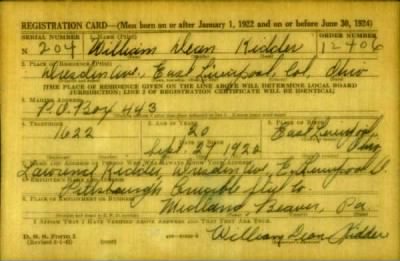 REGISTRATION CARD—(Men born on or after January 1, 1922 and on or before June 30, 1924)
SERIAL NUMBER 1. NAME (Print) ORDER NUMBER
N 204 William Dean Kidder 12406
2. PLACE OF RESIDENCE (Print)
Dresden Ave, East Liverpool, Col, Ohio
[THE PLACE OF RESIDENCE GIVEN ON THE LINE ABOVE WILL DETERMINE LOCAL BOARD
JURISDICTION; LINE 2 OF REGISTRATION CERTIFICATE WILL BE IDENTICAL]
3. MAILING ADDRESS
P.O. Box 443
4. TELEPHONE 5. AGE IN YEARS 6. PLACE OF BIRTH
1622 20 East Liverpool
Sept. 27 1922 Ohio
7. NAME AND ADDRESS OF PERSON WHO WILL ALWAYS KNOW YOUR ADDRESS
Lawrence Kidder, Dresden Ave, E. Liverpool O.
8. EMPLOYER'S NAME AND ADDRESS
Pittsburgh Crucible Co.
9. PLACE OF EMPLOYMENT OR BUSINESS
Midland, Beaver, Pa.
I AFFIRM THAT I HAVE VERIFIED ABOVE ANSWERS AND THAT THEY ARE TRUE.
D. S. S. Form 1
William Dean Kidder